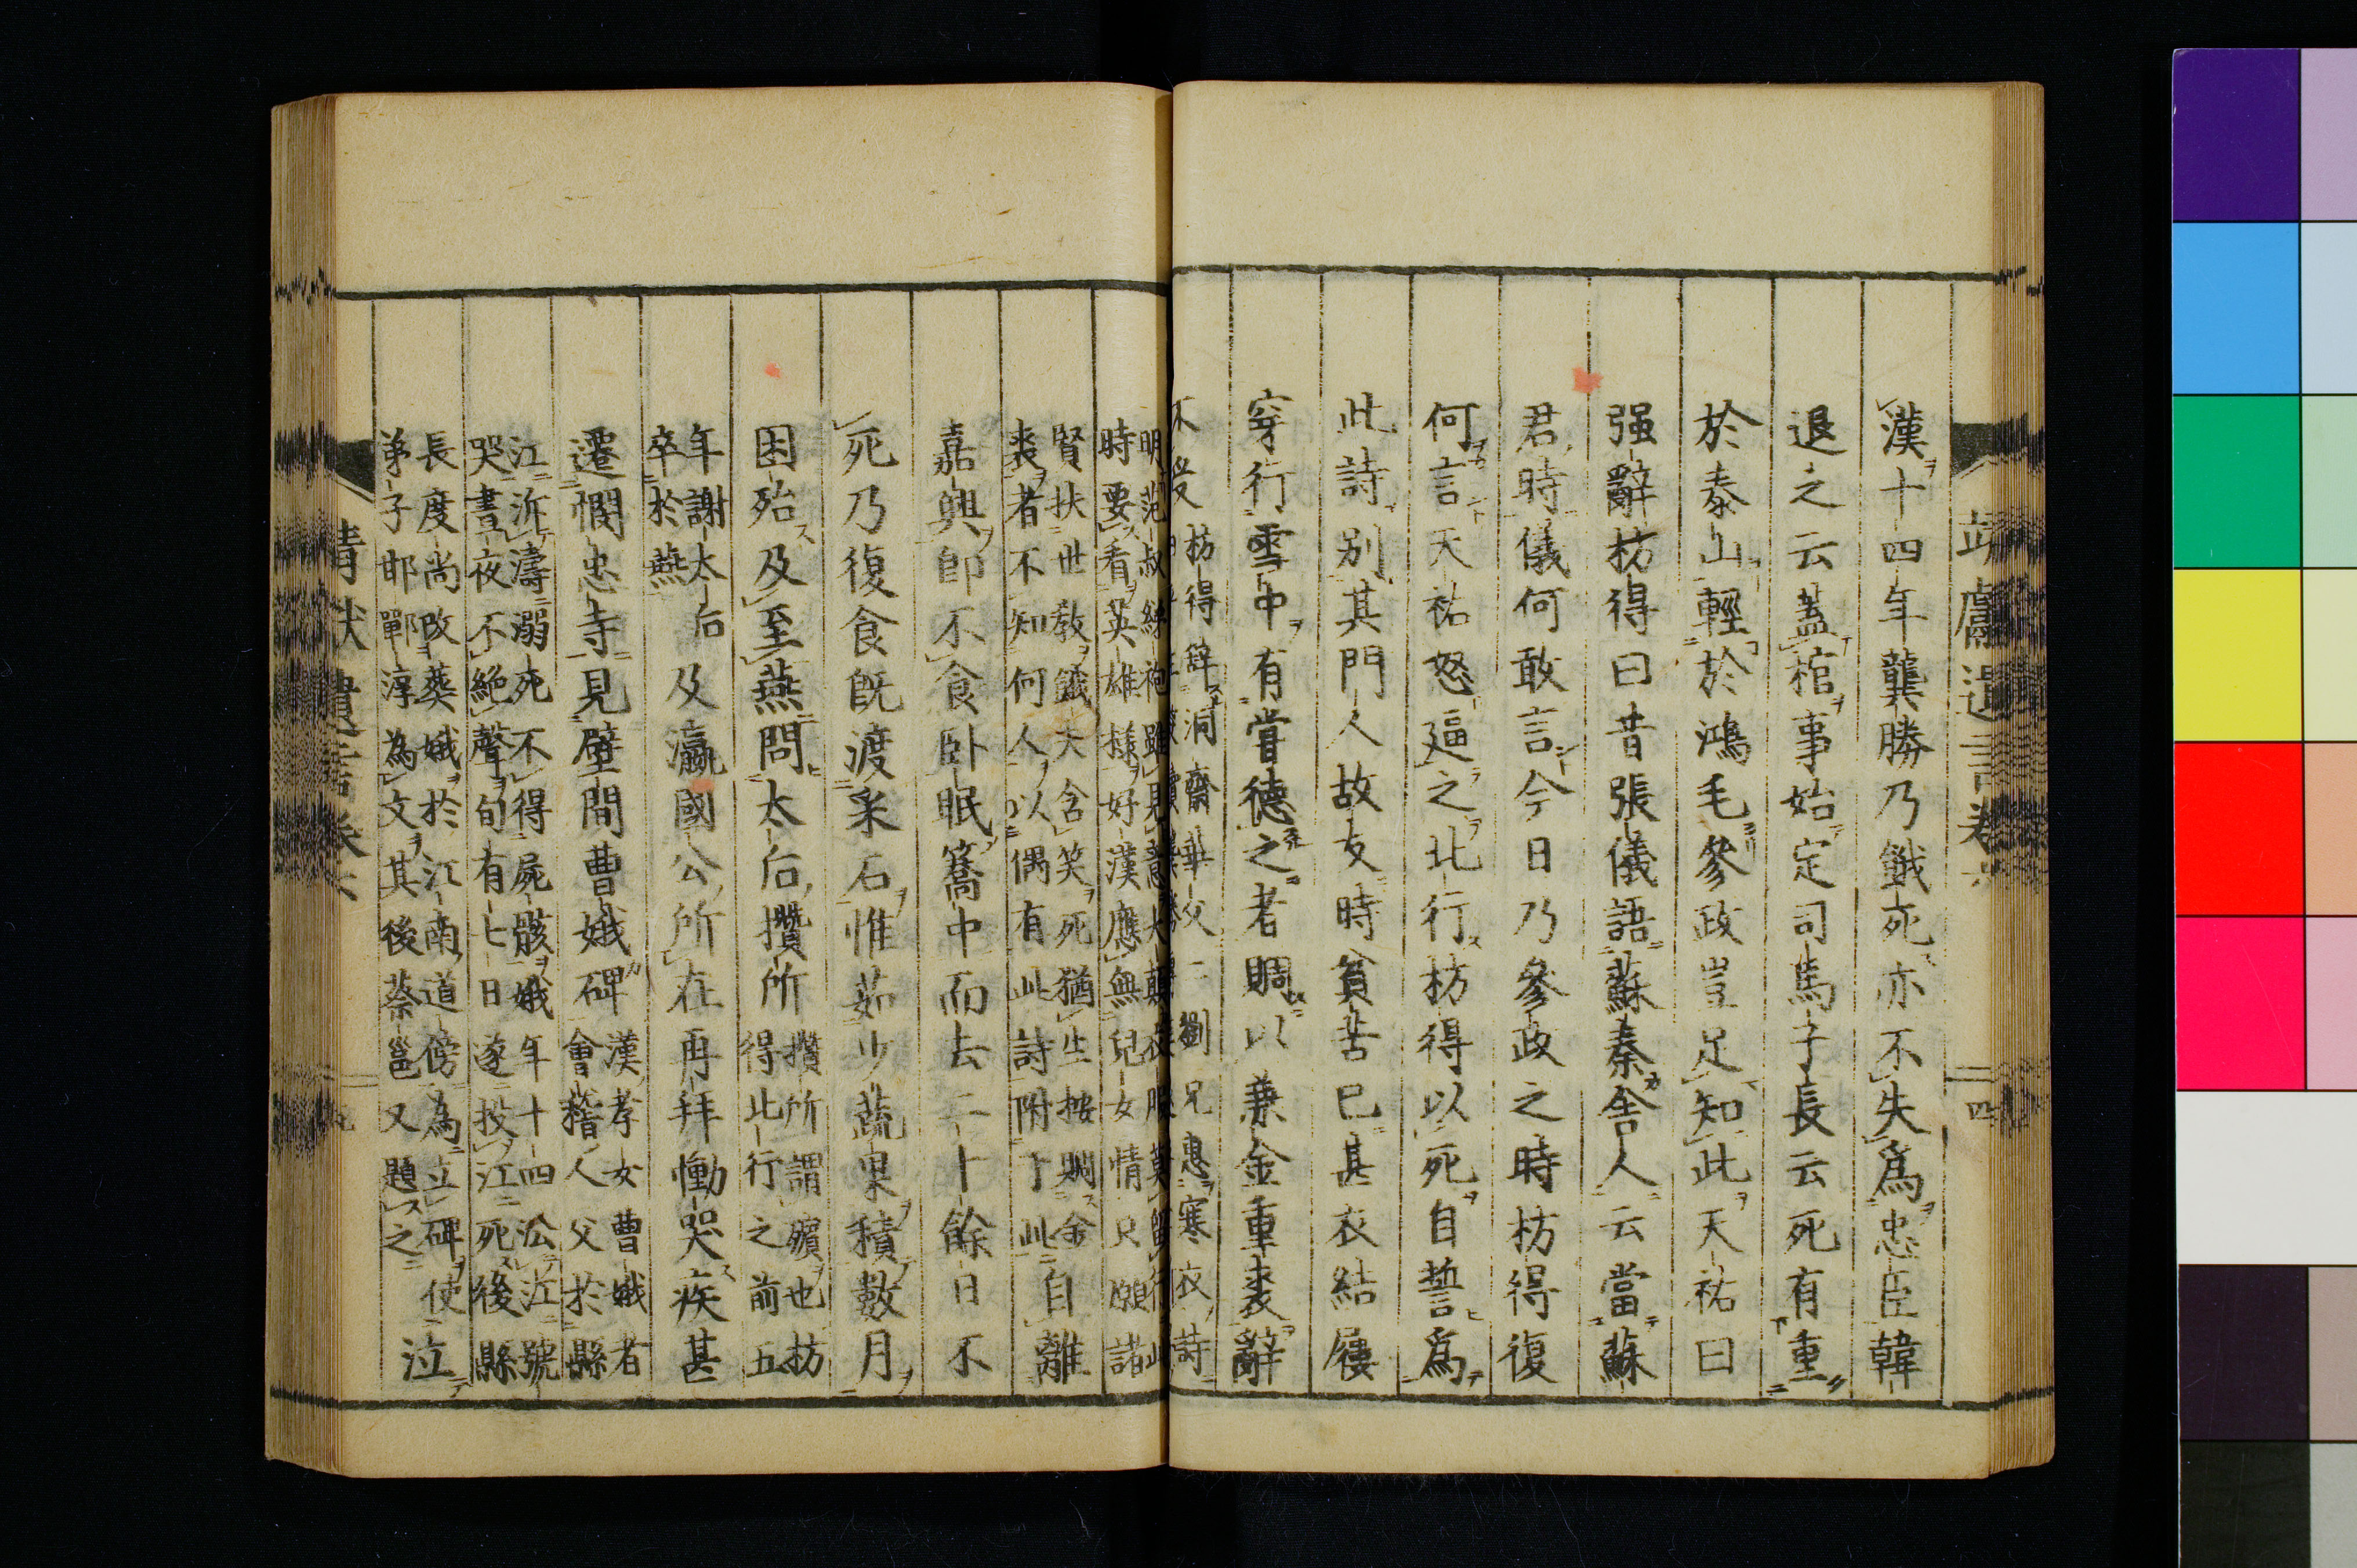 靖獻遺言卷
四
漢十四年龔勝乃餓死亦不失爲忠臣韓
退之云蓋棺事始定司馬子長云死有重
於泰山輕於鴻毛參政豈足知此天祐曰
强辭枋得曰昔張儀語蘇秦舍人云當蘇
君時儀何敢言今日乃參政之時枋得復
何言天祐怒逼之北行枋得以死自誓爲
此詩別其門人故友時貧苦已甚衣結屨
穿行雪中有嘗德之者賙以兼金重裘辭
不受
枋得辭洞齋華父二劉兄惠寒衣詩
時要看英雄樣好漢應無兒女情只願諸
賢扶世教餓夫含笑死猶生按賙金
裘者不知何人以偶有此詩附于此
自離
嘉興卽不食臥眠簥中而去二十餘日不
死乃復食旣渡采石惟茹少蔬果積數月
困殆及至燕問太后攢所
攢所謂殯也枋
得北行之前五
年謝太后
卒於燕
及瀛國公所在再拜慟哭疾甚
遷憫忠寺見壁間曹娥碑
漢孝女曹娥者
會稽人父於縣
江泝濤溺死不得屍骸娥年十四㳂江號
哭晝夜不絶聲旬有七日遂投江死後縣
長度尚改葬娥於江南道傍爲立碑使
弟子邯鄲淳為文其後蔡邕又題之
泣